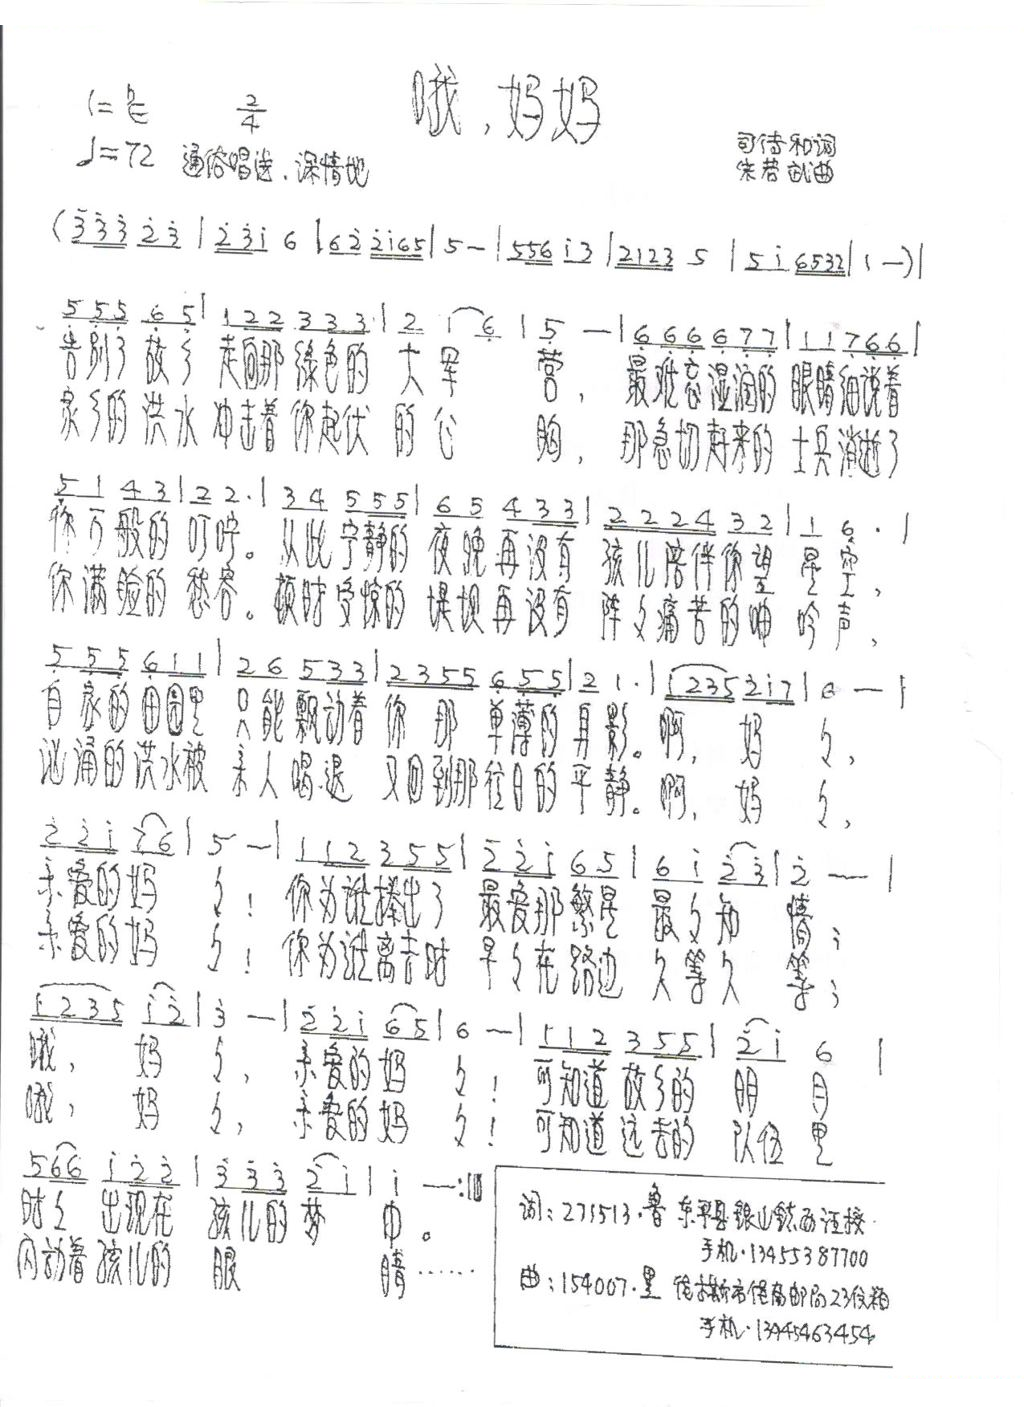 哦，妈妈
1=♭E 2/4
♩=72 通俗唱法、深情地
司传和词
朱若武曲
(3̇3̇3̇ 2̇3̇|2̇3̇i 6|62̇ 2̇i65|5-|556 i3|2123 5|5i 6532|1-)|
555 65|122 333|2 1 6|5 -|666 677|11766|
告别了 故乡 走向那 绿色的 大军 营，最难忘湿润的 眼睛细说着
家乡的 洪水 冲击着 你起伏 的心 胸，那急切赶来的 士兵消逝了
51 43|22·|34 555|65 433|2224 32|1 6·|
你万般的 叮咛。从此宁静的 夜晚再没有 孩儿陪伴你望 星空，
你满脸的 愁容。顿时受惊的 堤坝再没有 阵々痛苦的呻 吟声，
555 611|26 533|2355 655|2 1·|i235 2̇i7|6 -|
自家的田园里 只能飘动着 你那 单薄的 身影。啊，妈 々，
汹涌的洪水被 亲人喝退 又回到那往日的 平静。啊，妈 々，
2̇2̇i 76|5 -|112 355|2̇2̇i 65|6i 2̇3̇|2̇ -|
亲爱的妈 々！你为谁捧出了 最爱那繁星 最々知 情；
亲爱的妈 々！你为谁离去时 早々在路边 久等久 等；
i235 i2̇|3̇ -|2̇2̇i 65|6 -|112 355|2̇i 6|
哦，妈 々，亲爱的妈 々！可知道 故乡的 明 月
哦，妈 々，亲爱的妈 々！可知道 远去的 队伍 里
566 i2̇2̇|3̇3̇3̇ 2̇i|i -:‖
时々 出现在 孩儿的梦 中。
闪动着孩儿的 眼 睛……
词：271513·鲁 东平县银山镇西汪接·
手机·13455387700
曲：154007·黑 佳木斯市佳南邮局23信箱
手机·13945463454